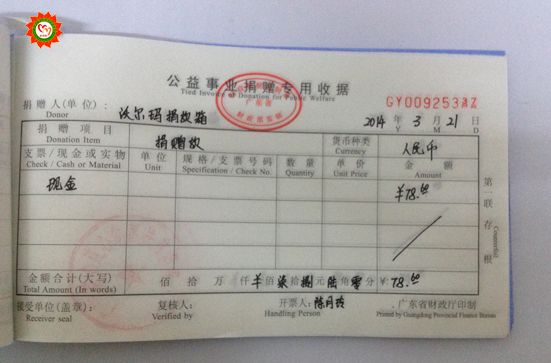 公益事业捐赠专用收据
Tied Invoice of Donation for Public Welfare
GY009253
捐赠人(单位): 沃尔玛捐款箱
Donor
2014 年 3 月 21 日
Y M D
捐赠项目 捐赠款 货币种类 人民币
Donation Item Currency
支票/现金或实物 单位 规格/支票号码 数量 单价 金额
Check / Cash or Material Unit Specification / Check No. Quantity Unit Price Amount
现金 ¥78.60
第二联 存根
Counterfoil
金额合计(大写) 佰 拾 万 仟 佰 柒拾 捌元 陆角 零分 ¥: 78.60
Total Amount (In words)
接受单位(盖章): 复核人: 开票人: 陈月玲 广东省财政厅印制
Receiver seal Verified by Handling Person Printed by Guangdong Provincial Finance Bureau